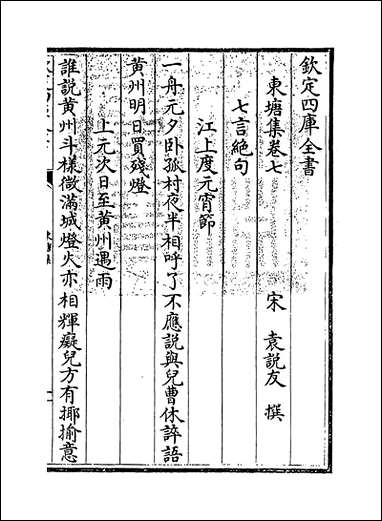 欽定四庫全書
東塘集卷七
宋 袁說友 撰
七言絶句
江上度元宵節
一舟元夕卧孤村夜半相呼了不應説與兒曹休誶語
黄州明日買殘燈
上元次日至黄州遇雨
誰説黄州斗様微滿城燈火亦相輝癡兒方有揶揄意